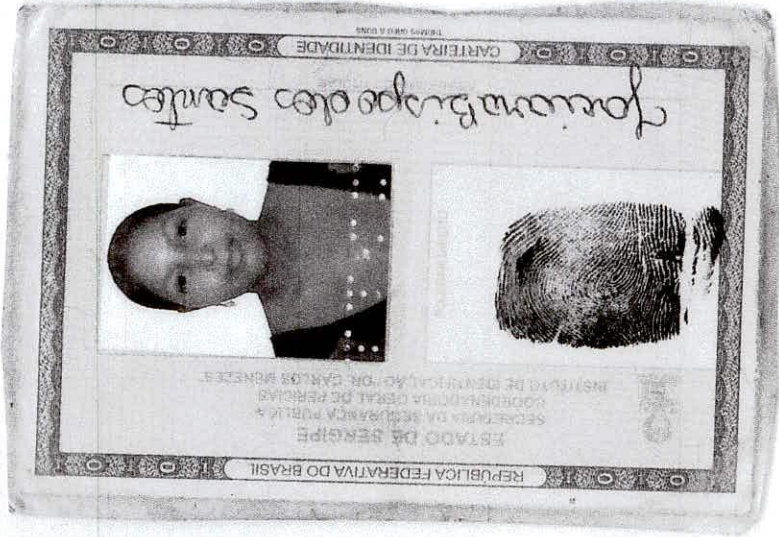 REPÚBLICA FEDERATIVA DO BRASIL
ESTADO DE SERGIPE
SECRETARIA DA SEGURANÇA PÚBLICA
COORDENADORIA GERAL DE PERÍCIAS
INSTITUTO DE IDENTIFICAÇÃO "DR. CARLOS MENEZES"
Bispo dos Santos
CARTEIRA DE IDENTIDADE